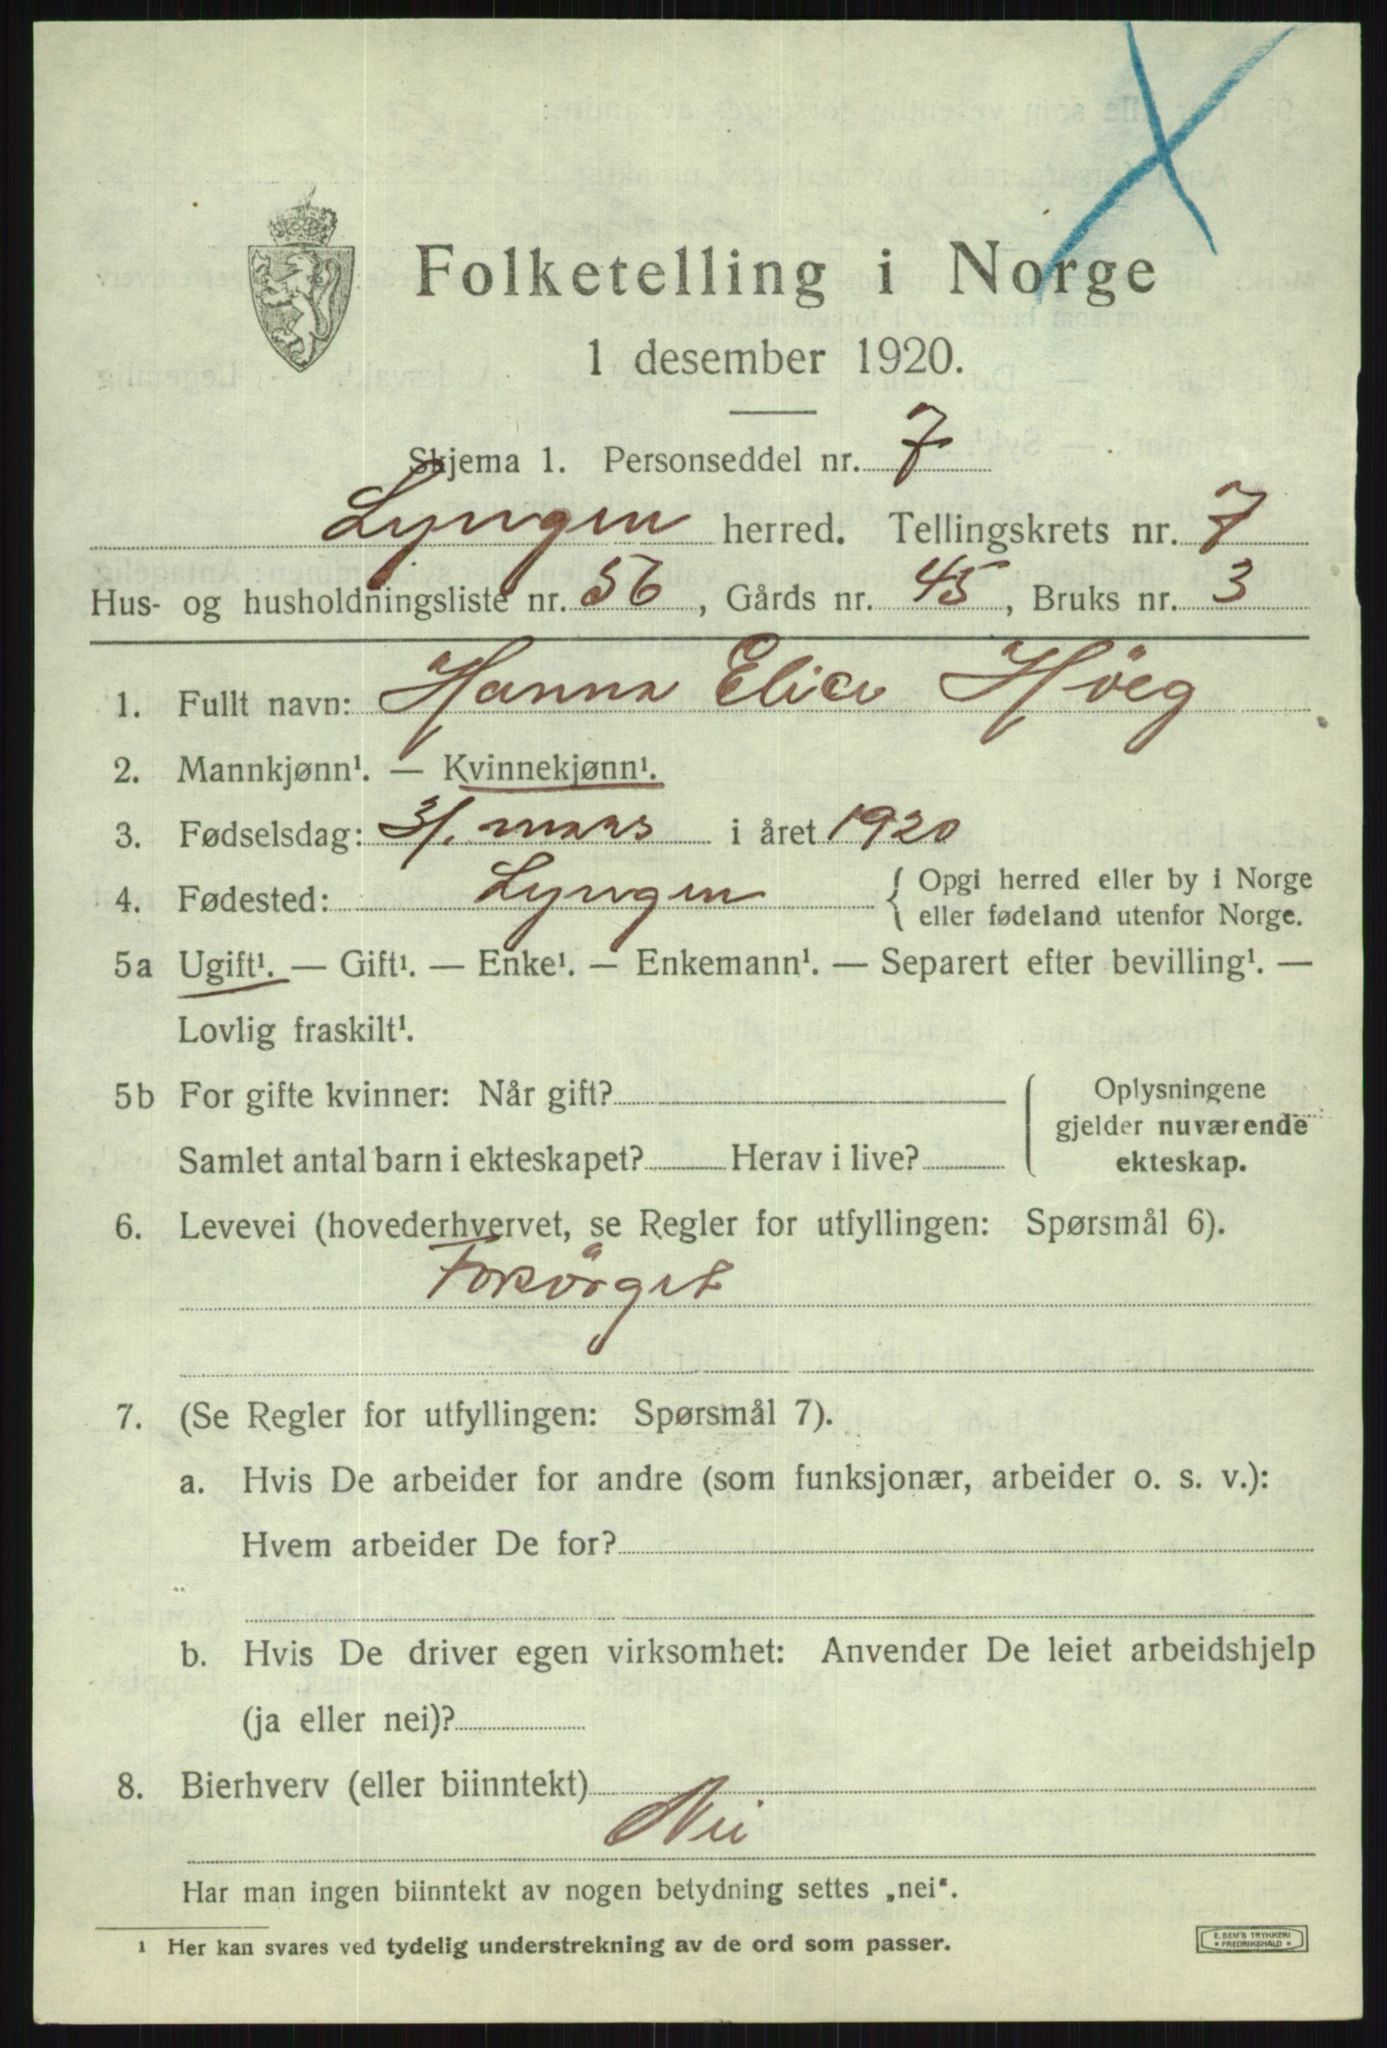 Folketelling i Norge
1 desember 1920.
Skjema 1. Personseddel nr. 7
Lyngen herred. Tellingskrets nr. 7
Hus- og husholdningsliste nr. 56, Gårds nr. 45, Bruks nr. 3
1. Fullt navn: Hanna Høeg
2. Mannkjønn¹. — Kvinnekjønn¹.
3. Fødselsdag: 3/. mars i året 1920
4. Fødested: Lyngen { Opgi herred eller by i Norge
eller fødeland utenfor Norge.
5a Ugift¹. — Gift¹. — Enke¹. — Enkemann¹. — Separert efter bevilling¹. —
Lovlig fraskilt¹.
5b For gifte kvinner: Når gift? { Oplysningene
gjelder nuværende
Samlet antal barn i ekteskapet? Herav i live? ekteskap.
6. Levevei (hovederhvervet, se Regler for utfyllingen: Spørsmål 6).
Forsörget
7. (Se Regler for utfyllingen: Spørsmål 7).
a. Hvis De arbeider for andre (som funksjonær, arbeider o. s. v.):
Hvem arbeider De for?
b. Hvis De driver egen virksomhet: Anvender De leiet arbeidshjelp
(ja eller nei)?
8. Bierhverv (eller biinntekt)
Nei
Har man ingen biinntekt av nogen betydning settes „nei“.
¹ Her kan svares ved tydelig understrekning av de ord som passer.
E. SEM'S TRYKKERI
* FREDRIKSHALD *